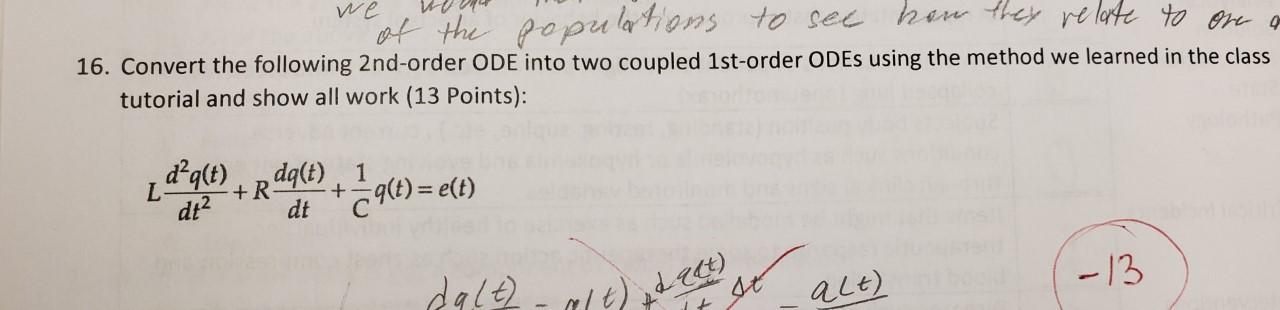 we
of the populations to see how they relate to one
16. Convert the following 2nd-order ODE into two coupled 1st-order ODEs using the method we learned in the class
tutorial and show all work (13 Points):
L d²q(t)/dt² + R dq(t)/dt + 1/C q(t) = e(t)
-13
dq(t) q(t) + dq(t) Δt - q(t)